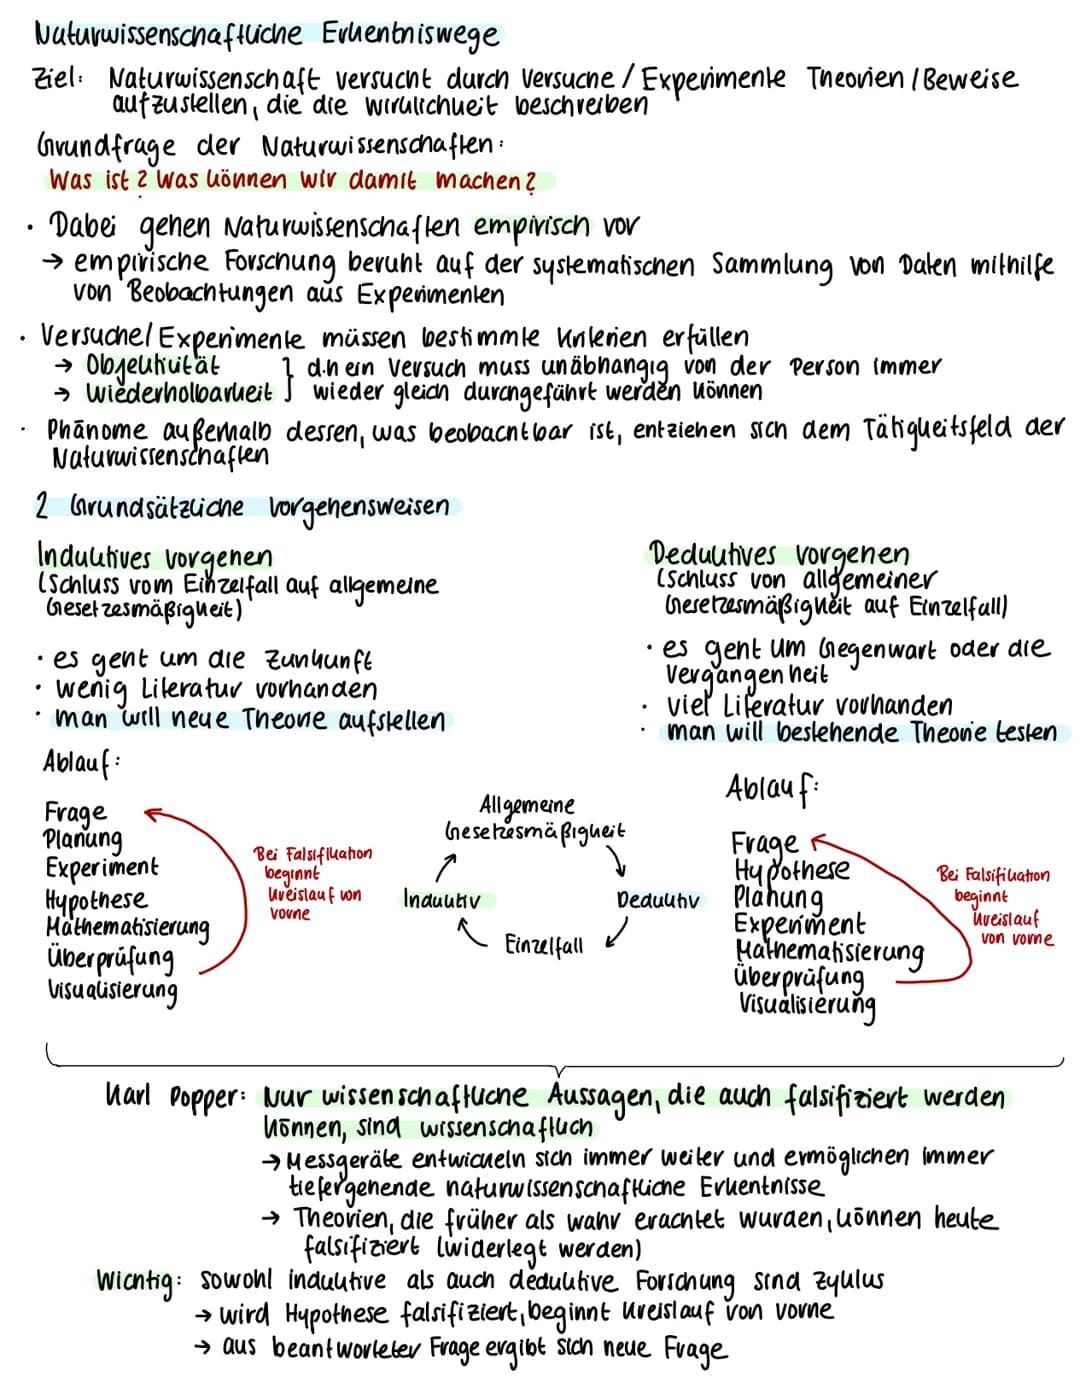 Naturwissenschaftliche Erkentniswege
Ziel: Naturwissenschaft versucht durch Versuche / Experimente Theorien / Beweise
aufzustellen, die die Wirklichkeit beschreiben
Grundfrage der Naturwissenschaften:
Was ist? Was können wir damit machen?
• Dabei gehen Naturwissenschaften empirisch vor
→ empirische Forschung beruht auf der systematischen Sammlung von Daten mithilfe
von Beobachtungen aus Experimenten
• Versuche/Experimente müssen bestimmte Kriterien erfüllen
→ Objektivität } d.h ein Versuch muss unabhängig von der Person immer
→ Wiederholbarkeit } wieder gleich durchgeführt werden können
• Phänome außerhalb dessen, was beobachtbar ist, entziehen sich dem Tätigkeitsfeld der
Naturwissenschaften
2 Grundsätzliche Vorgehensweisen
Induktives Vorgehen
(Schluss vom Einzelfall auf allgemeine
Gesetzesmäßigkeit)
• es geht um die Zunkunft
• wenig Literatur vorhanden
• man will neue Theorie aufstellen
Ablauf:
Frage
Planung
Experiment
Hypothese
Mathematisierung
Überprüfung
Visualisierung
Bei Falsifikation
beginnt
Kreislauf von
vorne
Allgemeine
Gesetzesmäßigkeit
Induktiv
Deduktiv
Einzelfall
Deduktives Vorgehen
(Schluss von allgemeiner
Gesetzesmäßigkeit auf Einzelfall)
• es geht um Gegenwart oder die
Vergangenheit
• viel Literatur vorhanden
• man will bestehende Theorie testen
Ablauf:
Frage
Hypothese
Planung
Experiment
Mathematisierung
Überprüfung
Visualisierung
Bei Falsifikation
beginnt
Kreislauf
von vorne
Karl Popper: Nur wissenschaftliche Aussagen, die auch falsifiziert werden
können, sind wissenschaftlich
→ Messgeräte entwickeln sich immer weiter und ermöglichen immer
tiefergehende naturwissenschaftliche Erkentnisse
→ Theorien, die früher als wahr erachtet wurden, können heute
falsifiziert (widerlegt werden)
Wichtig: Sowohl induktive als auch deduktive Forschung sind Zyklus
→ wird Hypothese falsifiziert, beginnt Kreislauf von vorne
→ aus beantworteter Frage ergibt sich neue Frage